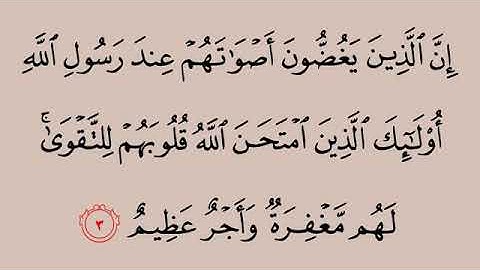 إِنَّ ٱلَّذِينَ يَغُضُّونَ أَصۡوَٰتَهُمۡ عِندَ رَسُولِ ٱللَّهِ
أُوْلَـٰٓئِكَ ٱلَّذِينَ ٱمۡتَحَنَ ٱللَّهُ قُلُوبَهُمۡ لِلتَّقۡوَىٰۚ
لَهُم مَّغۡفِرَةٌ وَأَجۡرٌ عَظِيمٌ ٣